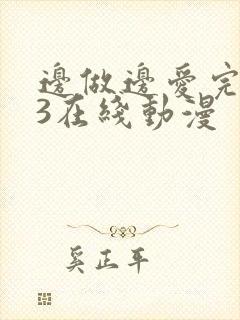 邊做邊愛完
3在綫動漫
奚正平